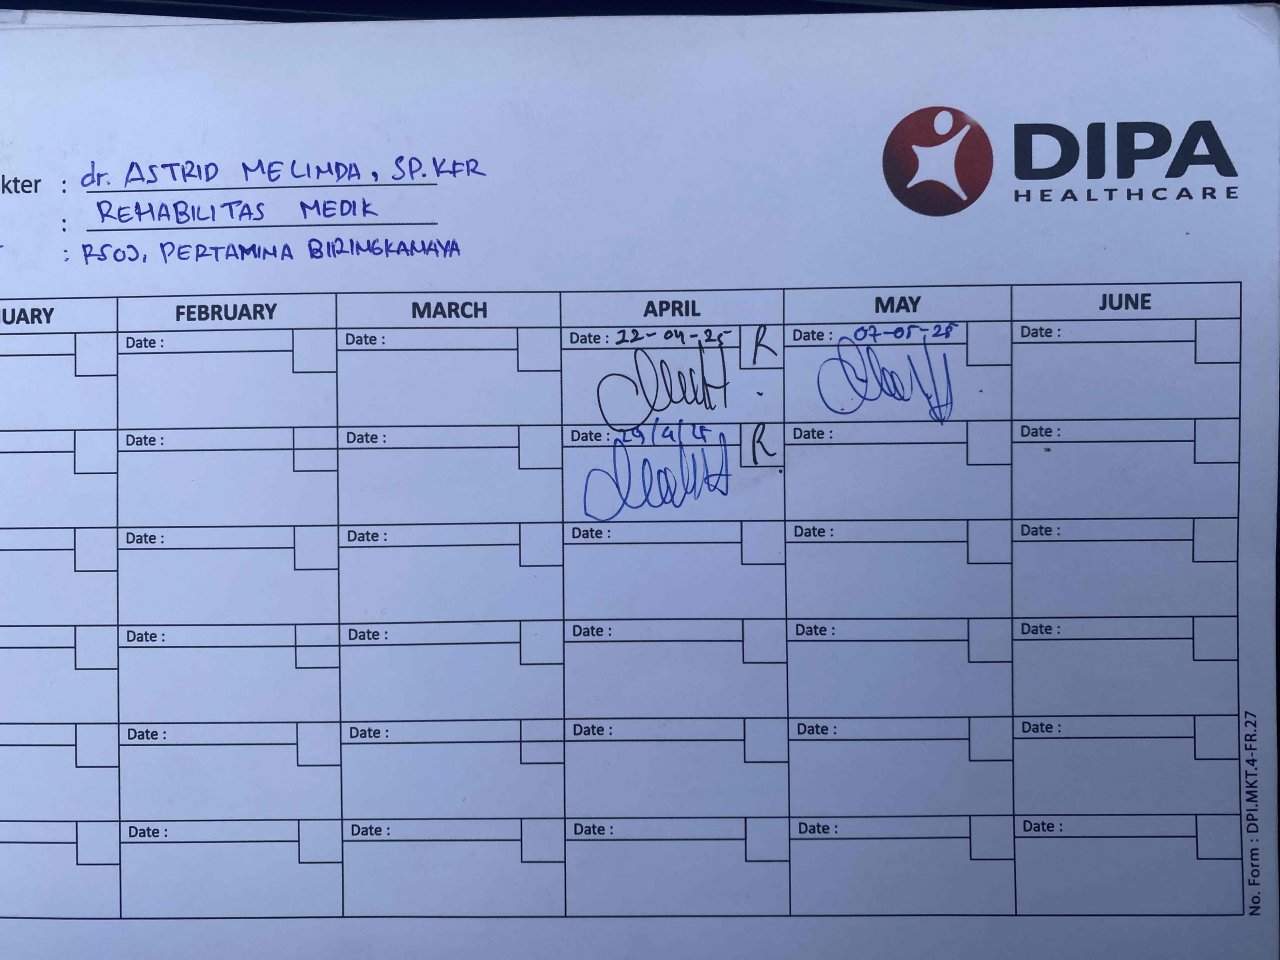 DIPA
HEALTHCARE
kter : dr. ASTRID MELINDA, SP.KFR
: REHABILITAS MEDIK
: RSOJ, PERTAMINA BIRINGKANAYA
UARY FEBRUARY MARCH APRIL MAY JUNE
Date : Date : Date : 22-04-25 R Date : 07-05-25 Date :
Date : Date : Date : 29/4/25 R Date : Date :
Date : Date : Date : Date : Date :
Date : Date : Date : Date : Date :
Date : Date : Date : Date : Date :
Date : Date : Date : Date : Date :
No. Form : DPI.MKT.4-FR.27